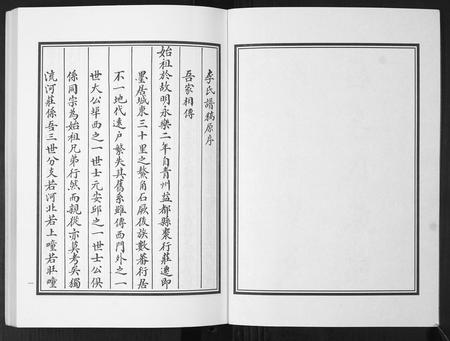 李氏譜稿原序
吾家相傳
始祖於故明永樂二年自青州益都縣棗行莊遷即
墨居城東三十里之鰲角石厥後族數蕃行居
不一地代遠戶繁失其舊系雖傳西門外之一
世大公華西之一世士元安邱之一世士公俱
係同宗為始祖兄弟行然而親從亦莫考矣獨
流河莊係吾三世分支若河北若上疃若旺疃